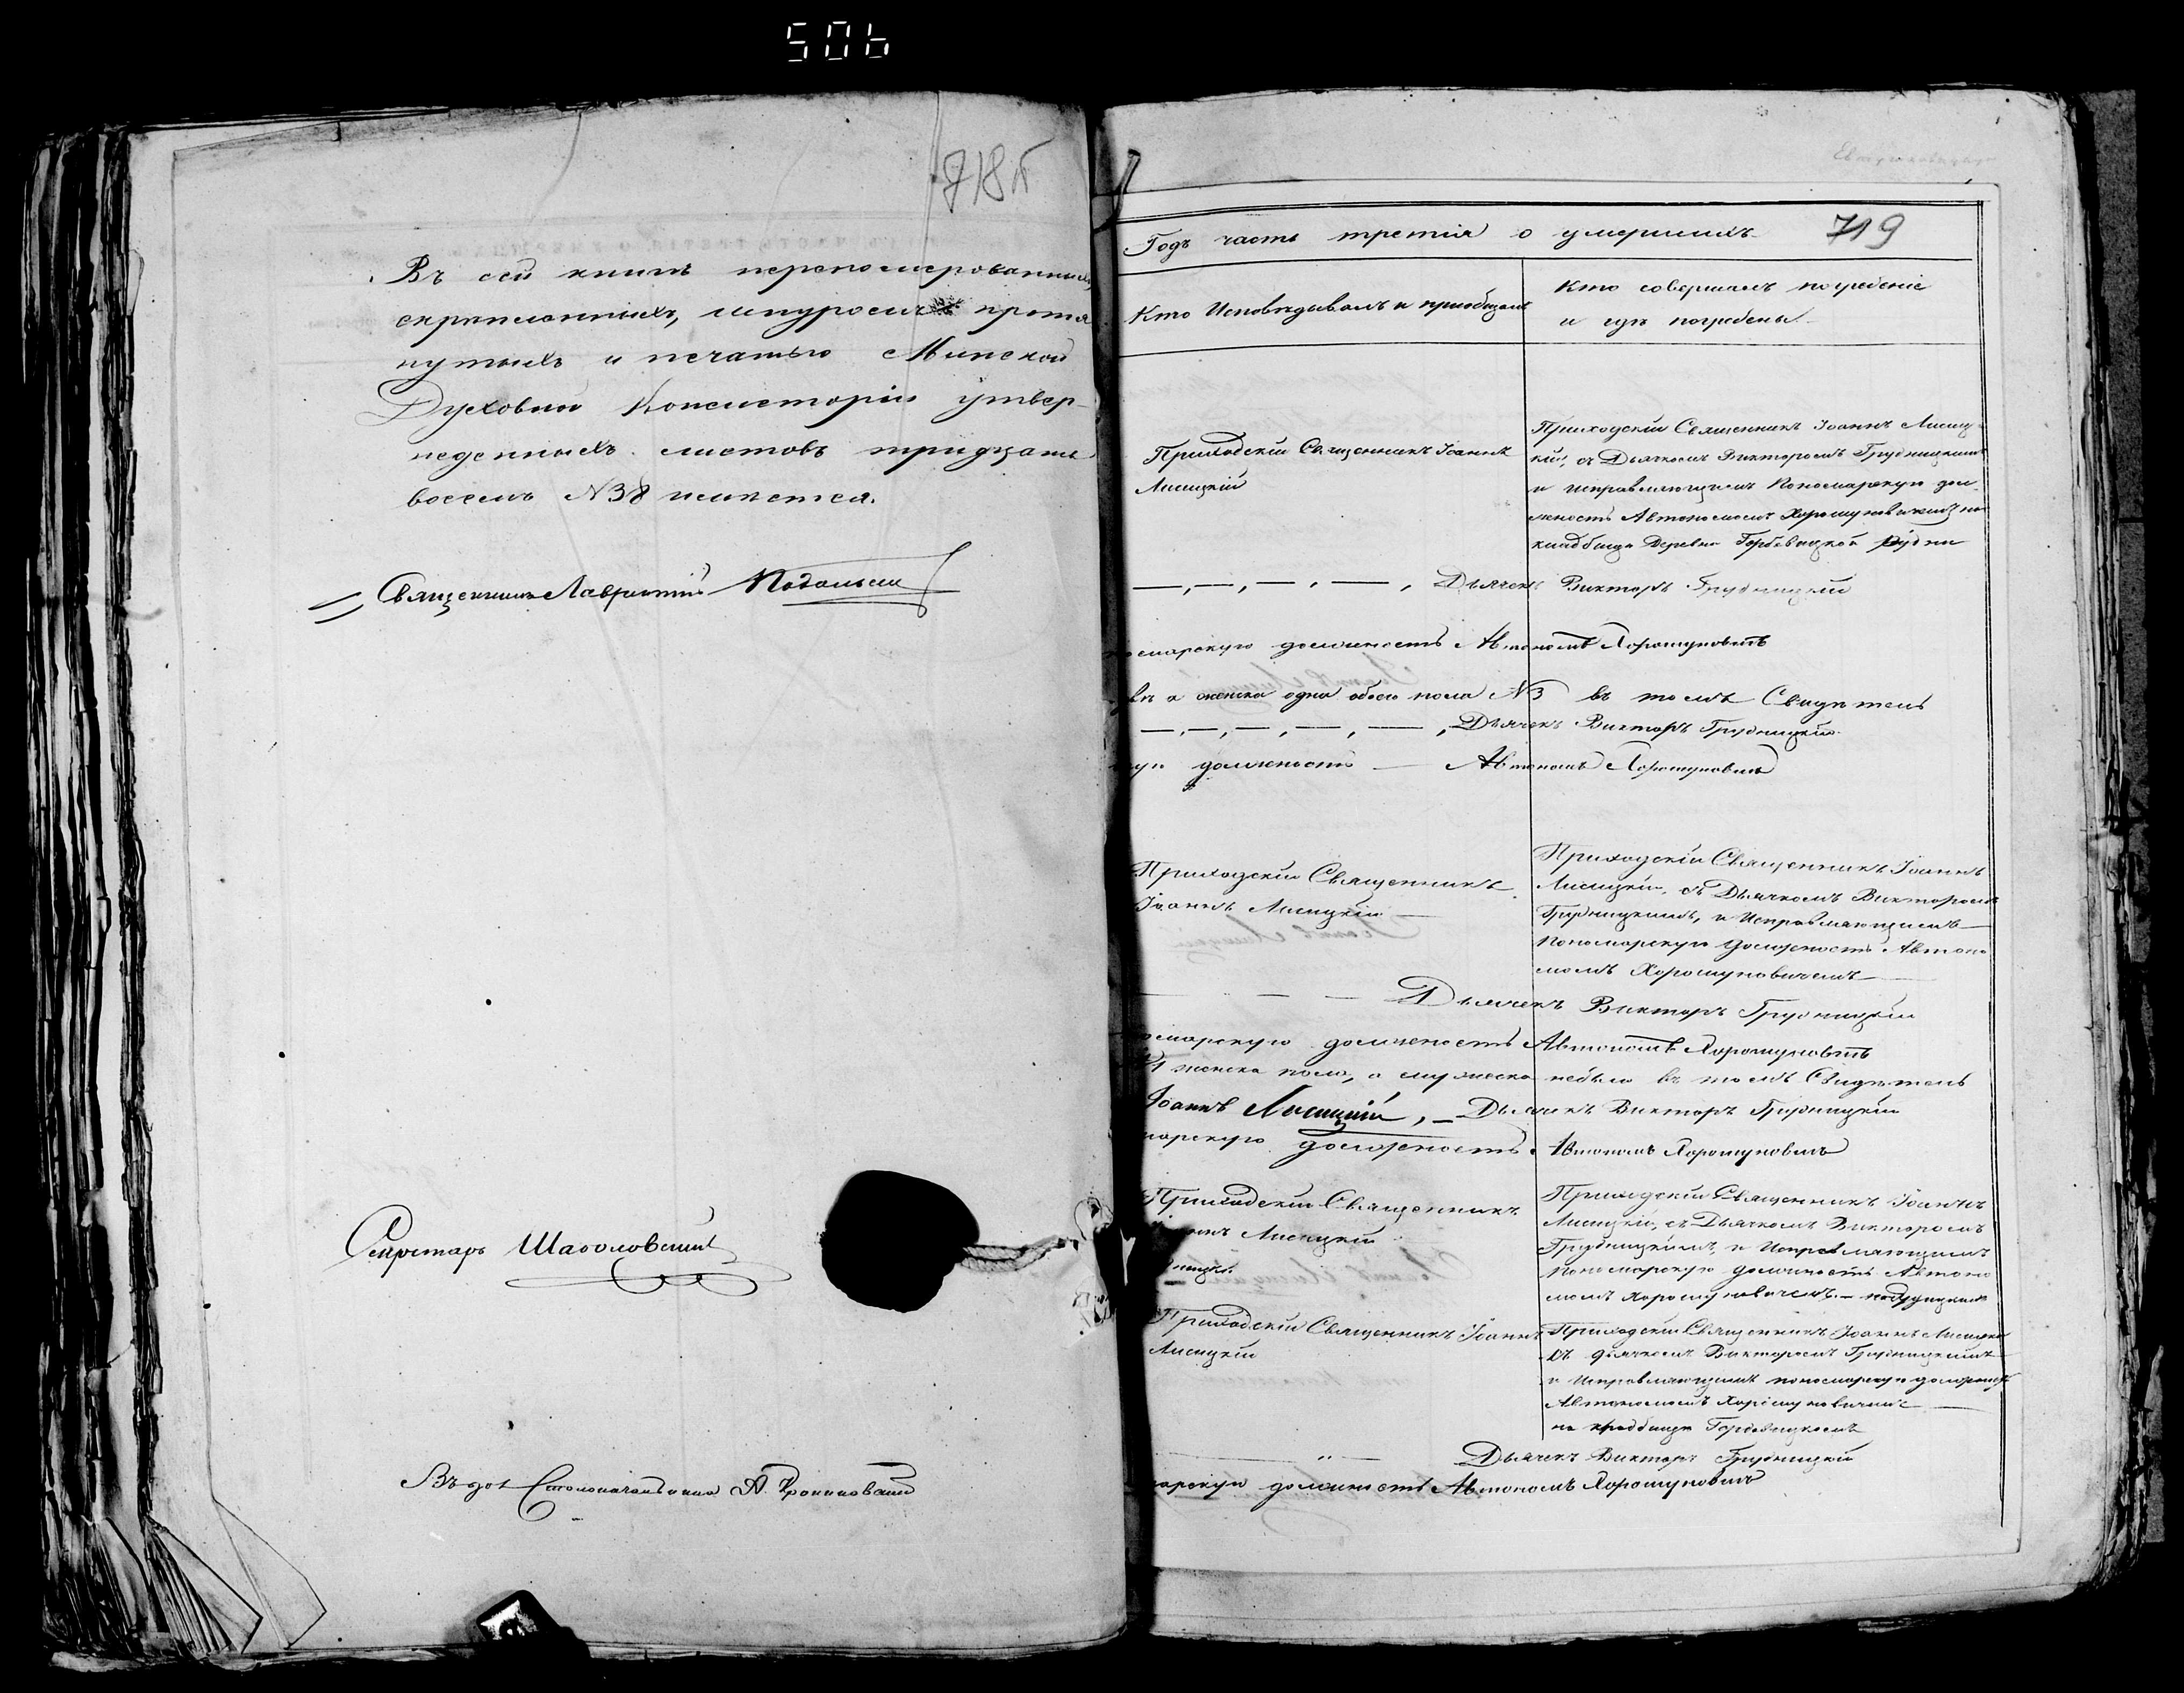 506
718б
Въ сей книгѣ перенумерованныхъ,
скрѣпленныхъ, шнуромъ протя
нутыхъ и печатью Минской
Духовной Консисторіи утвер-
жденныхъ листовъ тридцать
восемь №38 имѣется.
Священникъ Лаврентій
Секретарь
Столоначальника А.
719
Годъ часть третія о умершихъ
Кто Исповѣдывалъ и пріобщалъ
Кто совершалъ погребеніе
и гдѣ погребены
Приходскій Священникъ Іоаннъ
Лисицкій
Приходскій Священникъ Іоаннъ Лисиц-
кій, съ Дьячкомъ Викторомъ Грудницкимъ
и исправляющимъ Пономарскую дол-
жность Автономомъ Хорошуновичемъ на
кладбищѣ Деревни Горбовицкой Рудни
Дьячекъ Викторъ Грудницкій
номарскую должность Автономъ Хорошуновичъ
а женска одна обоего пола №3 въ томъ Свидѣтель
Дьячекъ Викторъ Грудницкій
должность Автономъ Хорошуновичъ
Приходскій Священникъ
Іоаннъ Лисицкій
Приходскій Священникъ Іоаннъ
Лисицкій, съ Дьячкомъ Викторомъ
Грудницкимъ, и Исправляющимъ
пономарскую должность Автоно
момъ Хорошуновичемъ
Дьячекъ Викторъ Грудницкій
номарскую должность Автономъ Хорошуновичъ
женска пола, а мужеска небыло въ томъ Свидѣтель
Іоаннъ Лисицкій, Дьячекъ Викторъ Грудницкій
марскую должность Автономъ Хорошуновичъ
Приходскій Священникъ
Іоаннъ Лисицкій
Приходскій Священникъ Іоаннъ
Лисицкій, съ Дьячкомъ Викторомъ
Грудницкимъ, и Исправляющимъ
пономарскую должность Автоно
момъ Хорошуновичемъ
Приходскій Священникъ Іоаннъ
Лисицкій
Приходскій Священникъ Іоаннъ Лисицкій
съ дьячкомъ Викторомъ Грудницкимъ
и Исправляющимъ пономарскую должность
Автономомъ Хорошуновичемъ
на кладбищѣ Горбовицкомъ
Дьячекъ Викторъ Грудницкій
марскую должность Автономъ Хорошуновичъ